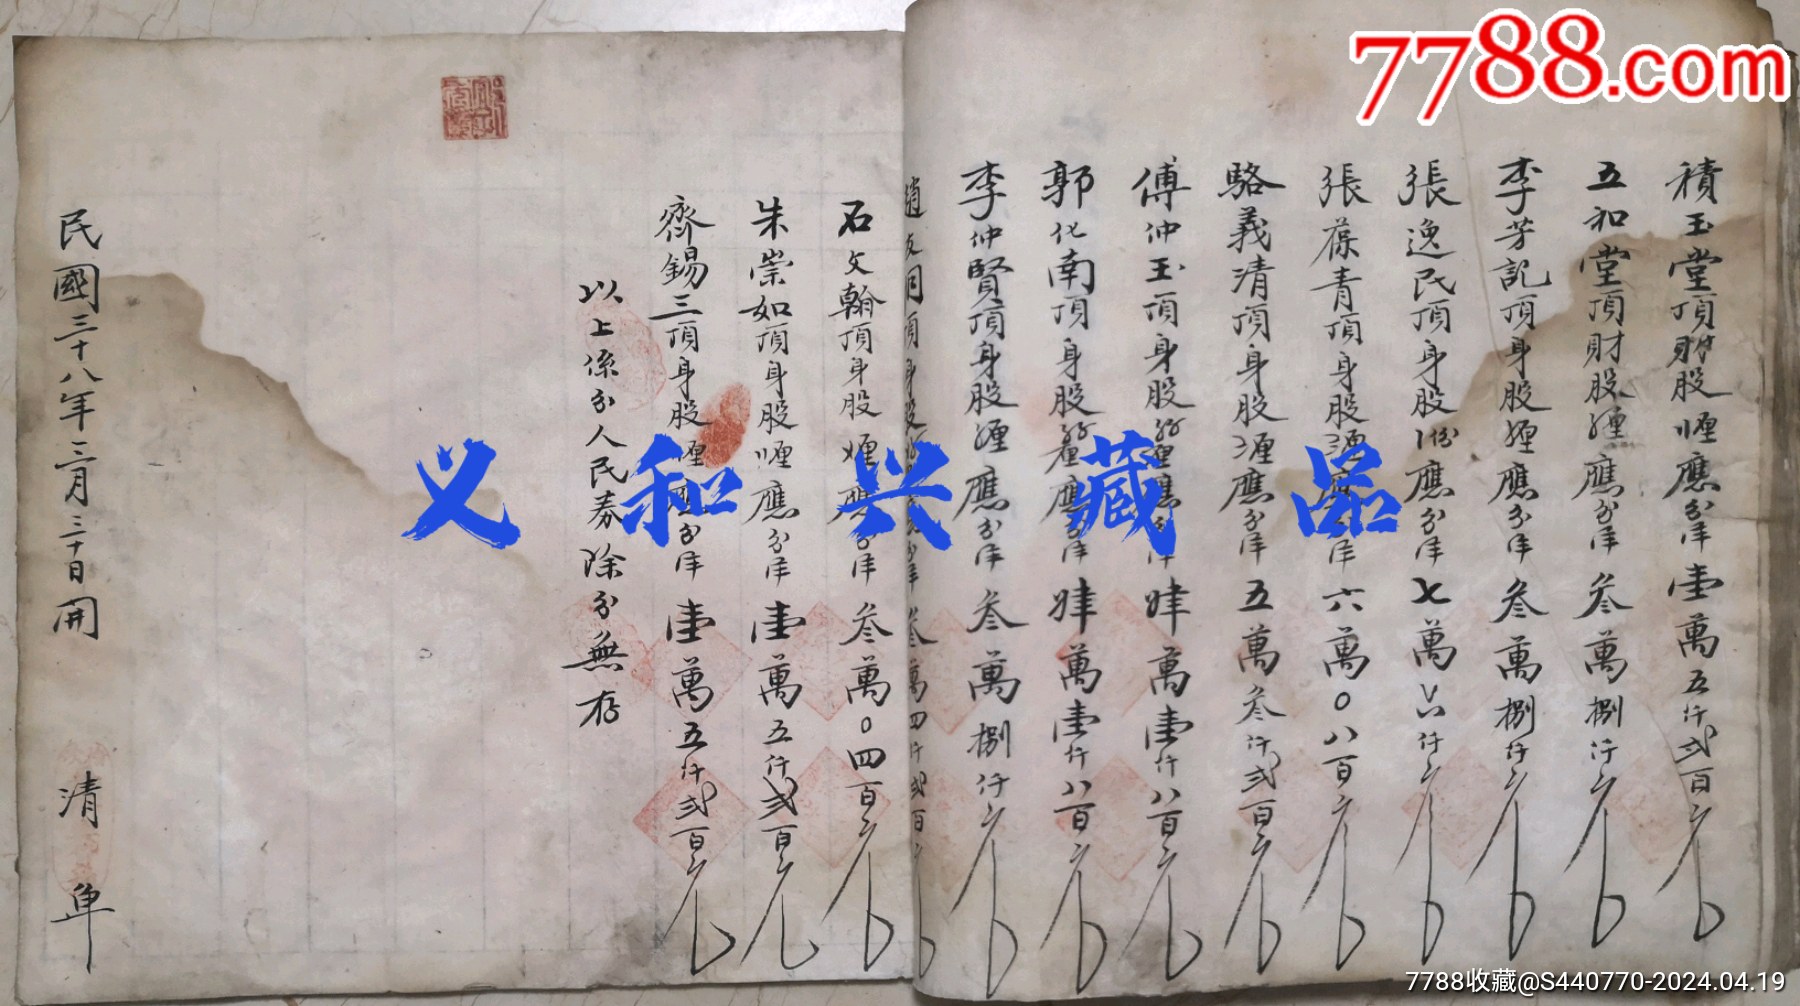 7788.com
積玉堂頂財股 應分洋壹萬五仟弍百元
五和堂頂財股 應分洋叁萬捌仟元
李芳記頂身股 應分洋叁萬捌仟元
張逸民頂身股 應分洋七萬六仟元
張葆青頂身股 洋六萬〇八百元
駱義清頂身股 應分洋五萬叁仟弍百元
傅仲玉頂身股 應分洋肆萬壹仟八百元
郭化南頂身股 應分洋肆萬壹仟八百元
李仲賢頂身股 應分洋叁萬捌仟元
趙 頂身股 叁萬四仟弍百
石文翰頂身股 應分洋叁萬〇四百元
朱崇如頂身股 應分洋壹萬五仟弍百元
齊錫三頂身股 應分洋壹萬五仟弍百元
以上係分人民券除分無存
民國三十八年三月三十日開 清單
义和兴藏品
7788收藏@S440770-2024.04.19